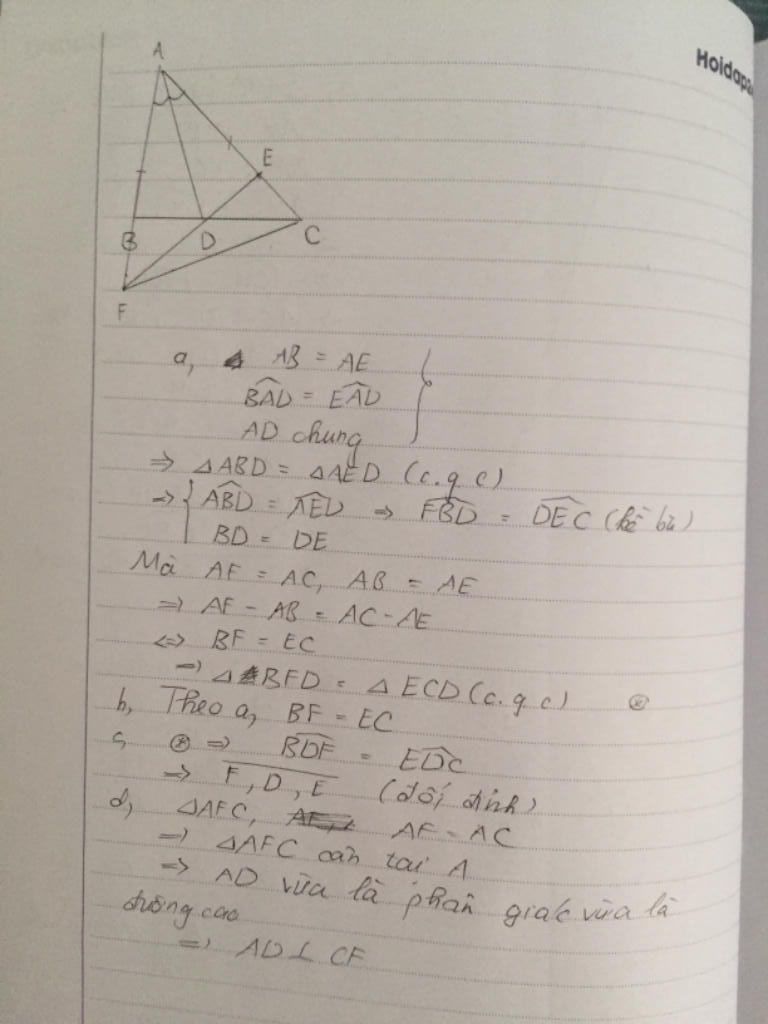 Hoidap
A
E
B
D
C
F
a, AB = AE
BÂD = EÂD
AD chung
=> △ABD = △AED (c.g.c)
=> { AB̂D = AÊD => FB̂D = DÊC (kề bù)
BD = DE
Mà AF = AC, AB = AE
=> AF - AB = AC - AE
<=> BF = EC
=> △BFD = △ECD (c.g.c) ⊛
b, Theo a, BF = EC
c, ⊛ => BD̂F = ED̂C
=> F, D, E (đối đỉnh)
d, △AFC, AF = AC
=> △AFC cân tại A
=> AD vừa là phân giác vừa là
đường cao
=> AD ⊥ CF